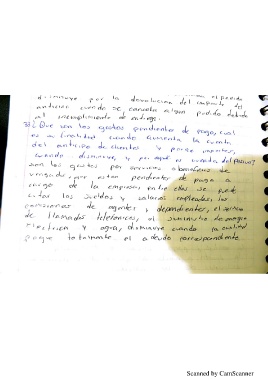 disminuye por la devolución del importe del
anticipo cuando se cancela algun pedido debido
al incumplimiento de entrega.
¿Que son los gastos pendientes de pago, cual
es su finalidad cuando aumenta la cuenta
del anticipo de clientes y porque importes,
cuando disminuye, y por que es cuenta del pasivo?
son los gastos por servicios
devengado, que estan pendientes de pago a
cargo de la empresa, entre ellos se puede
citar los sueldos y salarios empleados, las
comisiones de agentes y dependientes, el servicio
de llamadas telefonicas, el suministro de energia
electrica y agua, disminuye cuando la entidad
pague totalmente el adeudo correspondiente
Scanned by CamScanner